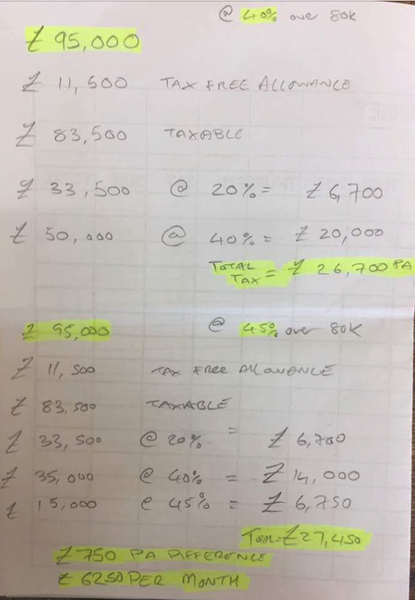 @ 40% over 80K
£ 95,000
£ 11,500 TAX FREE ALLOWANCE
£ 83,500 TAXABLE
£ 33,500 @ 20% = £ 6,700
£ 50,000 @ 40% = £ 20,000
TOTAL TAX = £ 26,700 PA
£ 95,000 @ 45% over 80K
£ 11,500 TAX FREE ALLOWANCE
£ 83,500 TAXABLE
£ 33,500 @ 20% = £ 6,700
£ 35,000 @ 40% = £ 14,000
£ 15,000 @ 45% = £ 6,750
£27,450
£750 PA DIFFERENCE
£ 6250 PER MONTH